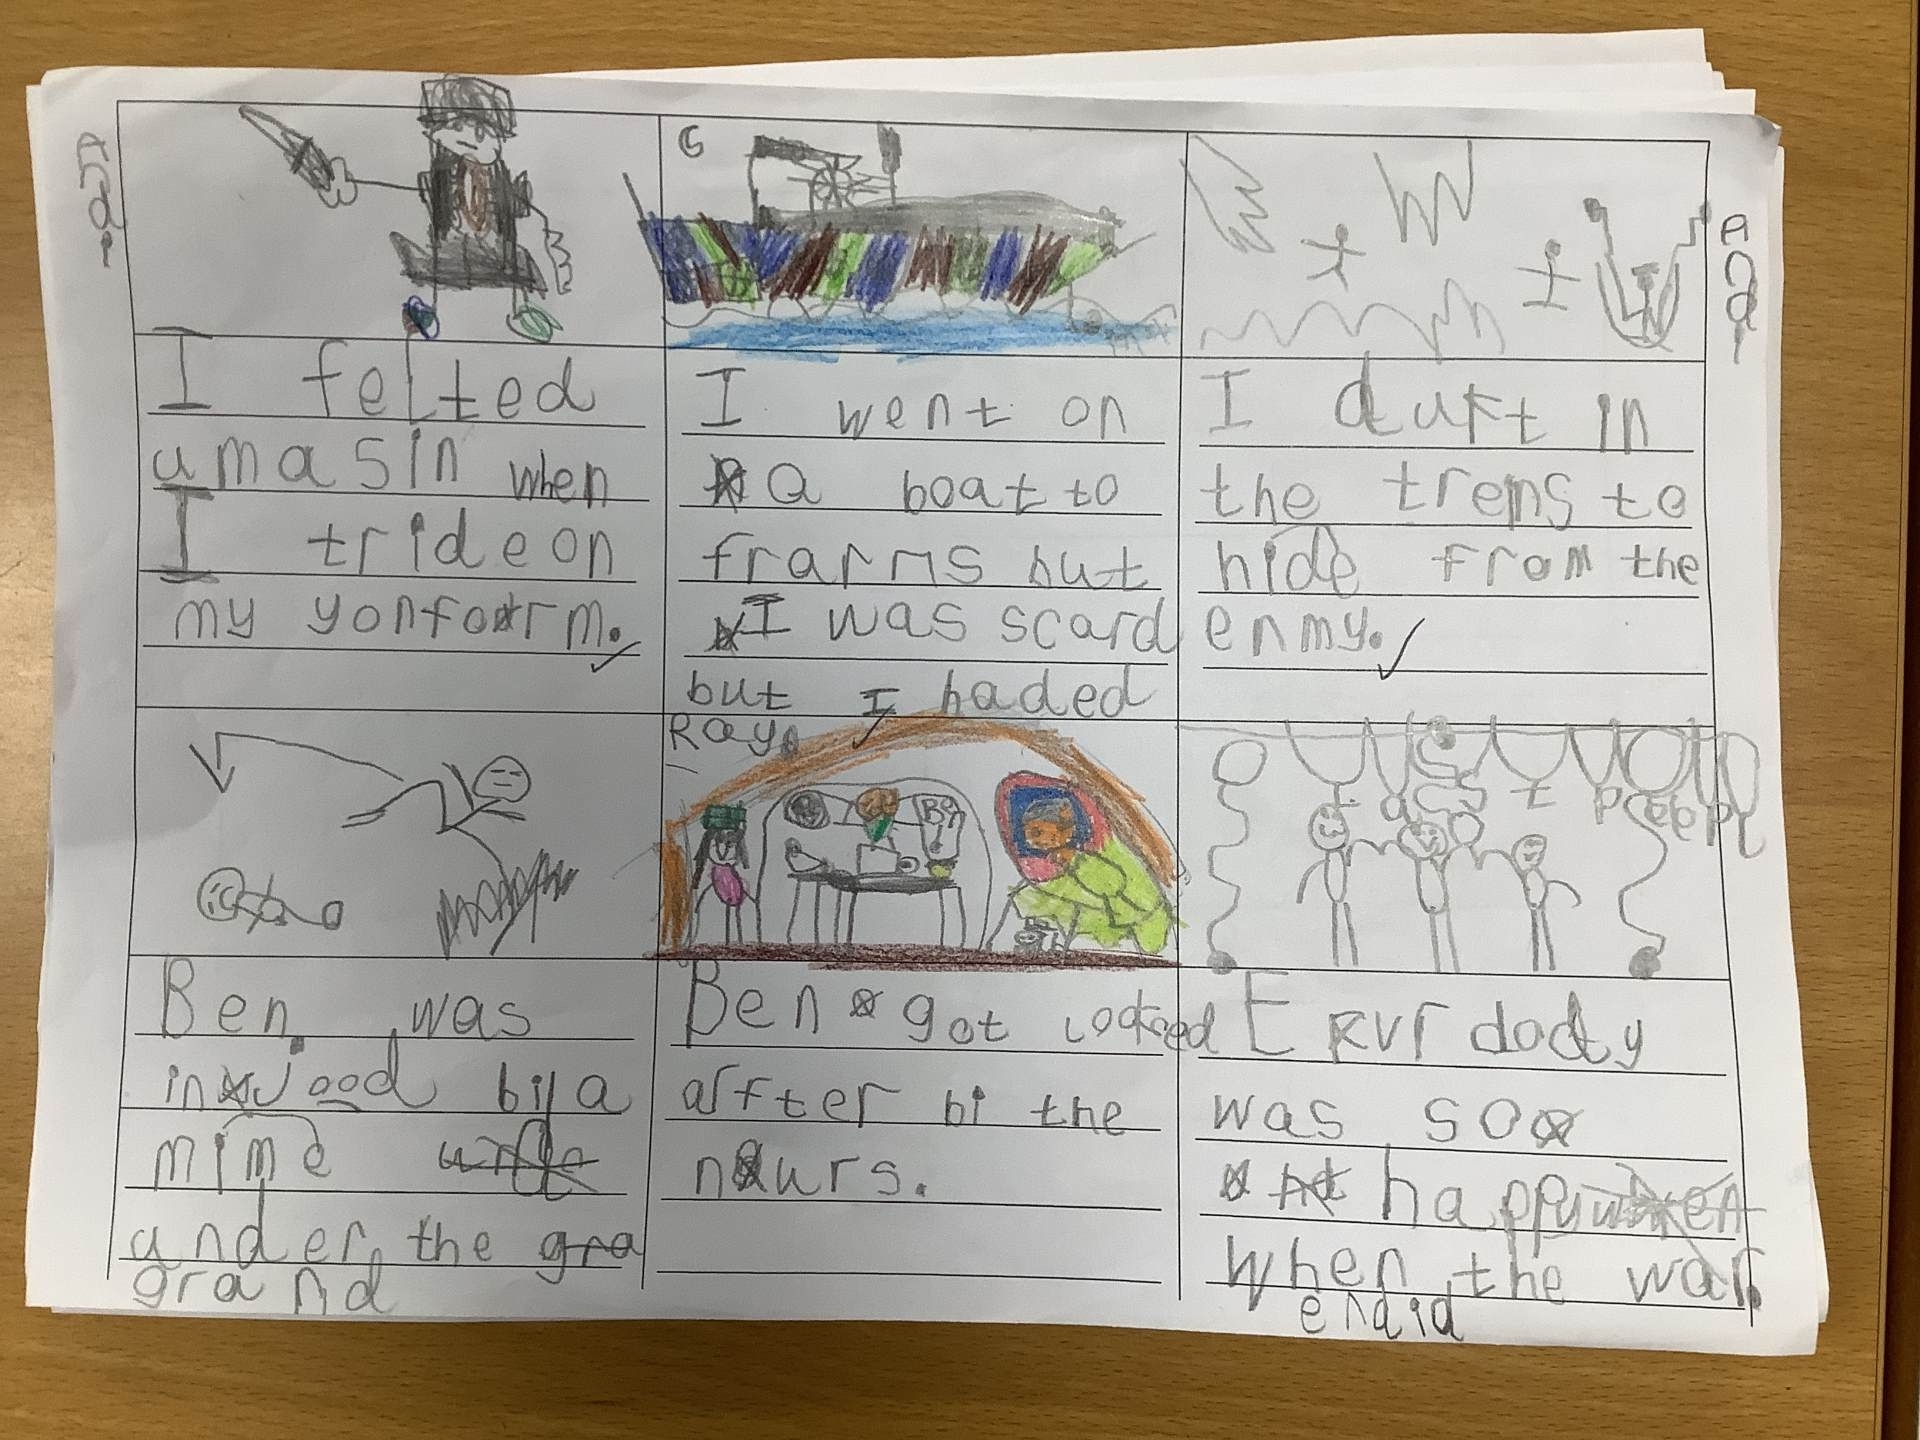 Andi
Andi
I felted
umasin when
I trideon
my yonform.
I went on
a boat to
frarns but
I was scard
but I haded
Ray.
I dukt in
the trens to
hide from the
enmy.
Ben
Ben was
injood bi a
mime
under the gra
grand
Ben got looked
after bi the
nurs.
Evur dody
was so
happy
when the war
endid